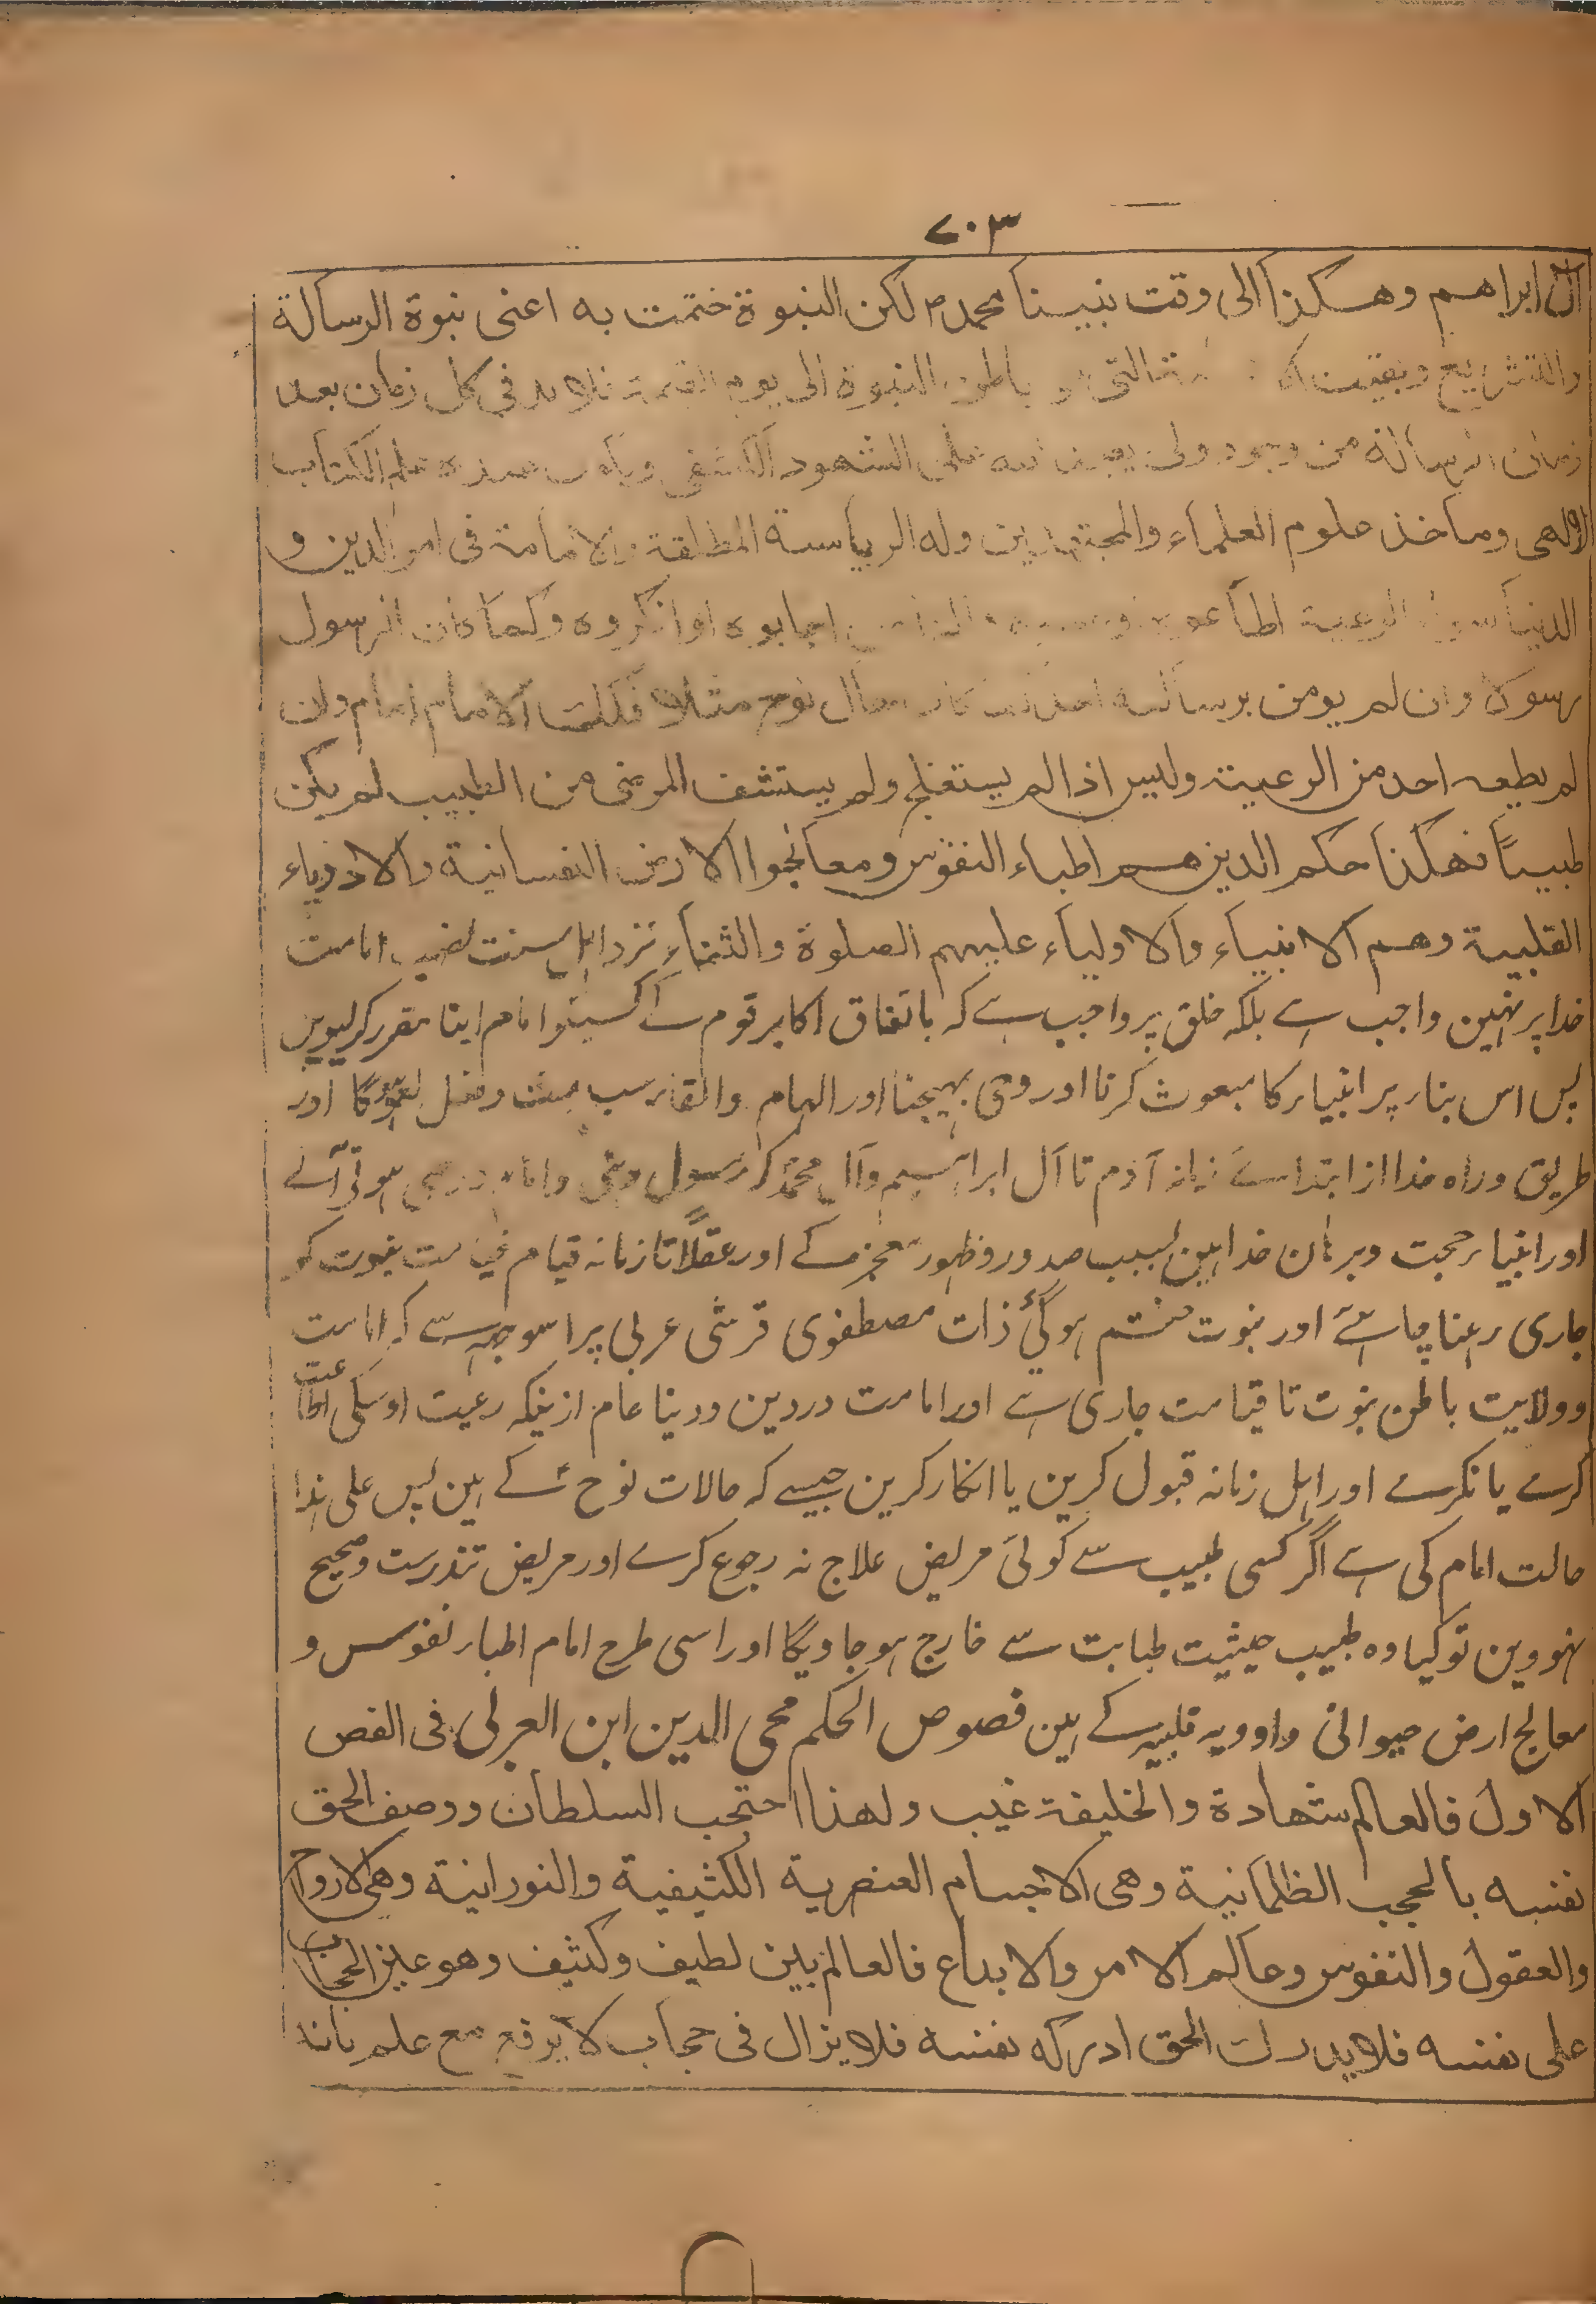 ۷۰۳
آل ابراهيم وهكذا الى وقت نبينا محمدم لكن النبوة ختمت به اعنى نبوة الرسالة
والتشريع وبقيت التى باطن النبوة الى يوم القيمة فلابد فى كل زمان بعد
زمان الرسالة من وجود ولى يعبد الله على الشهود الكشفى ويكون عنده علم الكتاب
الالهى وماخذ علوم العلماء والمجتهدين وله الرياسة المطلقة والامامة فى امر الدين و
الدنيا سواء الرعية اطاعوه الناس اجابوه او انكروه وكما كان الرسول
رسولا وان لم يومن برسالته احد كان حال نوح مثلا فكذلك الامام امام وان
لم يطعه احد من الرعية وليس اذا لم يستعلج ولم يستشف المرضى من الطبيب لم يكن
طبيبًا فهكذا حكم الذين هم اطباء النفوس ومعالجوا الارض النفسانية والادوياء
القلبية وهم الانبياء والاولياء عليهم الصلوة والثناء نزد اہل سنت نصب امامت
خدا پر نہین واجب ہے بلکہ خلق پر واجب ہے کہ باتفاق اکابر قوم کے کسیکو امام اپنا مقرر کرلیوین
پس اس بنار پر انبیار کا مبعوث کرنا اور وحی بہیجنا اور الہام والقار سب عبث وفعل لغو ہوگا اور
طریق وراہ خدا از ابتداے زمانہ آدم تا آل ابراہیم وآل محمدؐ کہ رسول ونبی وامام ہوتی آئے
اور انبیار حجت وبرہان خدا ہین بسبب صدور وظہور معجزہ کے اور عقلاً تا زمانہ قیام قیامت نبوت کو
جاری رہنا چاہئے اور نبوت مختتم ہوگئی ذات مصطفوی قرشی عربی پر اسوجہ سے کہ امامت
وولایت باطن نبوت تا قیامت جاری ہے اور امامت دردین ودنیا عام ازینکہ رعیت اوسکی اطاعت
کرے یا نکرے اور اہل زمانہ قبول کرین یا انکار کرین جیسے کہ حالات نوحؑ کے ہین پس علی ہذا
حالت امام کی ہے اگر کسی طبیب سے کوئی مریض علاج نہ رجوع کرے اور مریض تندرست وصحیح
نہووین تو کیا وہ طبیب حیثیت طبابت سے خارج ہوجاویگا اور اسی طرح امام اطبار نفوس و
معالج ارض حیوانی وادویہ قلبیہ کے ہین فصوص الحکم محی الدین ابن العربی فی الفص
الاول فالعالم شهادة والخليفة غيب ولهذا احتجب السلطان ووصف الحق
نفسه بالحجب الظلمانية وهى الاجسام العنصرية الكثيفية والنورانية وهى الارواح
والعقول والنفوس وعالم الامر والابداع فالعالم بين لطيف وكثيف وهو عين الحجاب
على نفسه فلا يدرك الحق ادركه نفسه فلا يزال فى حجاب لا يرفع مع علم بانه